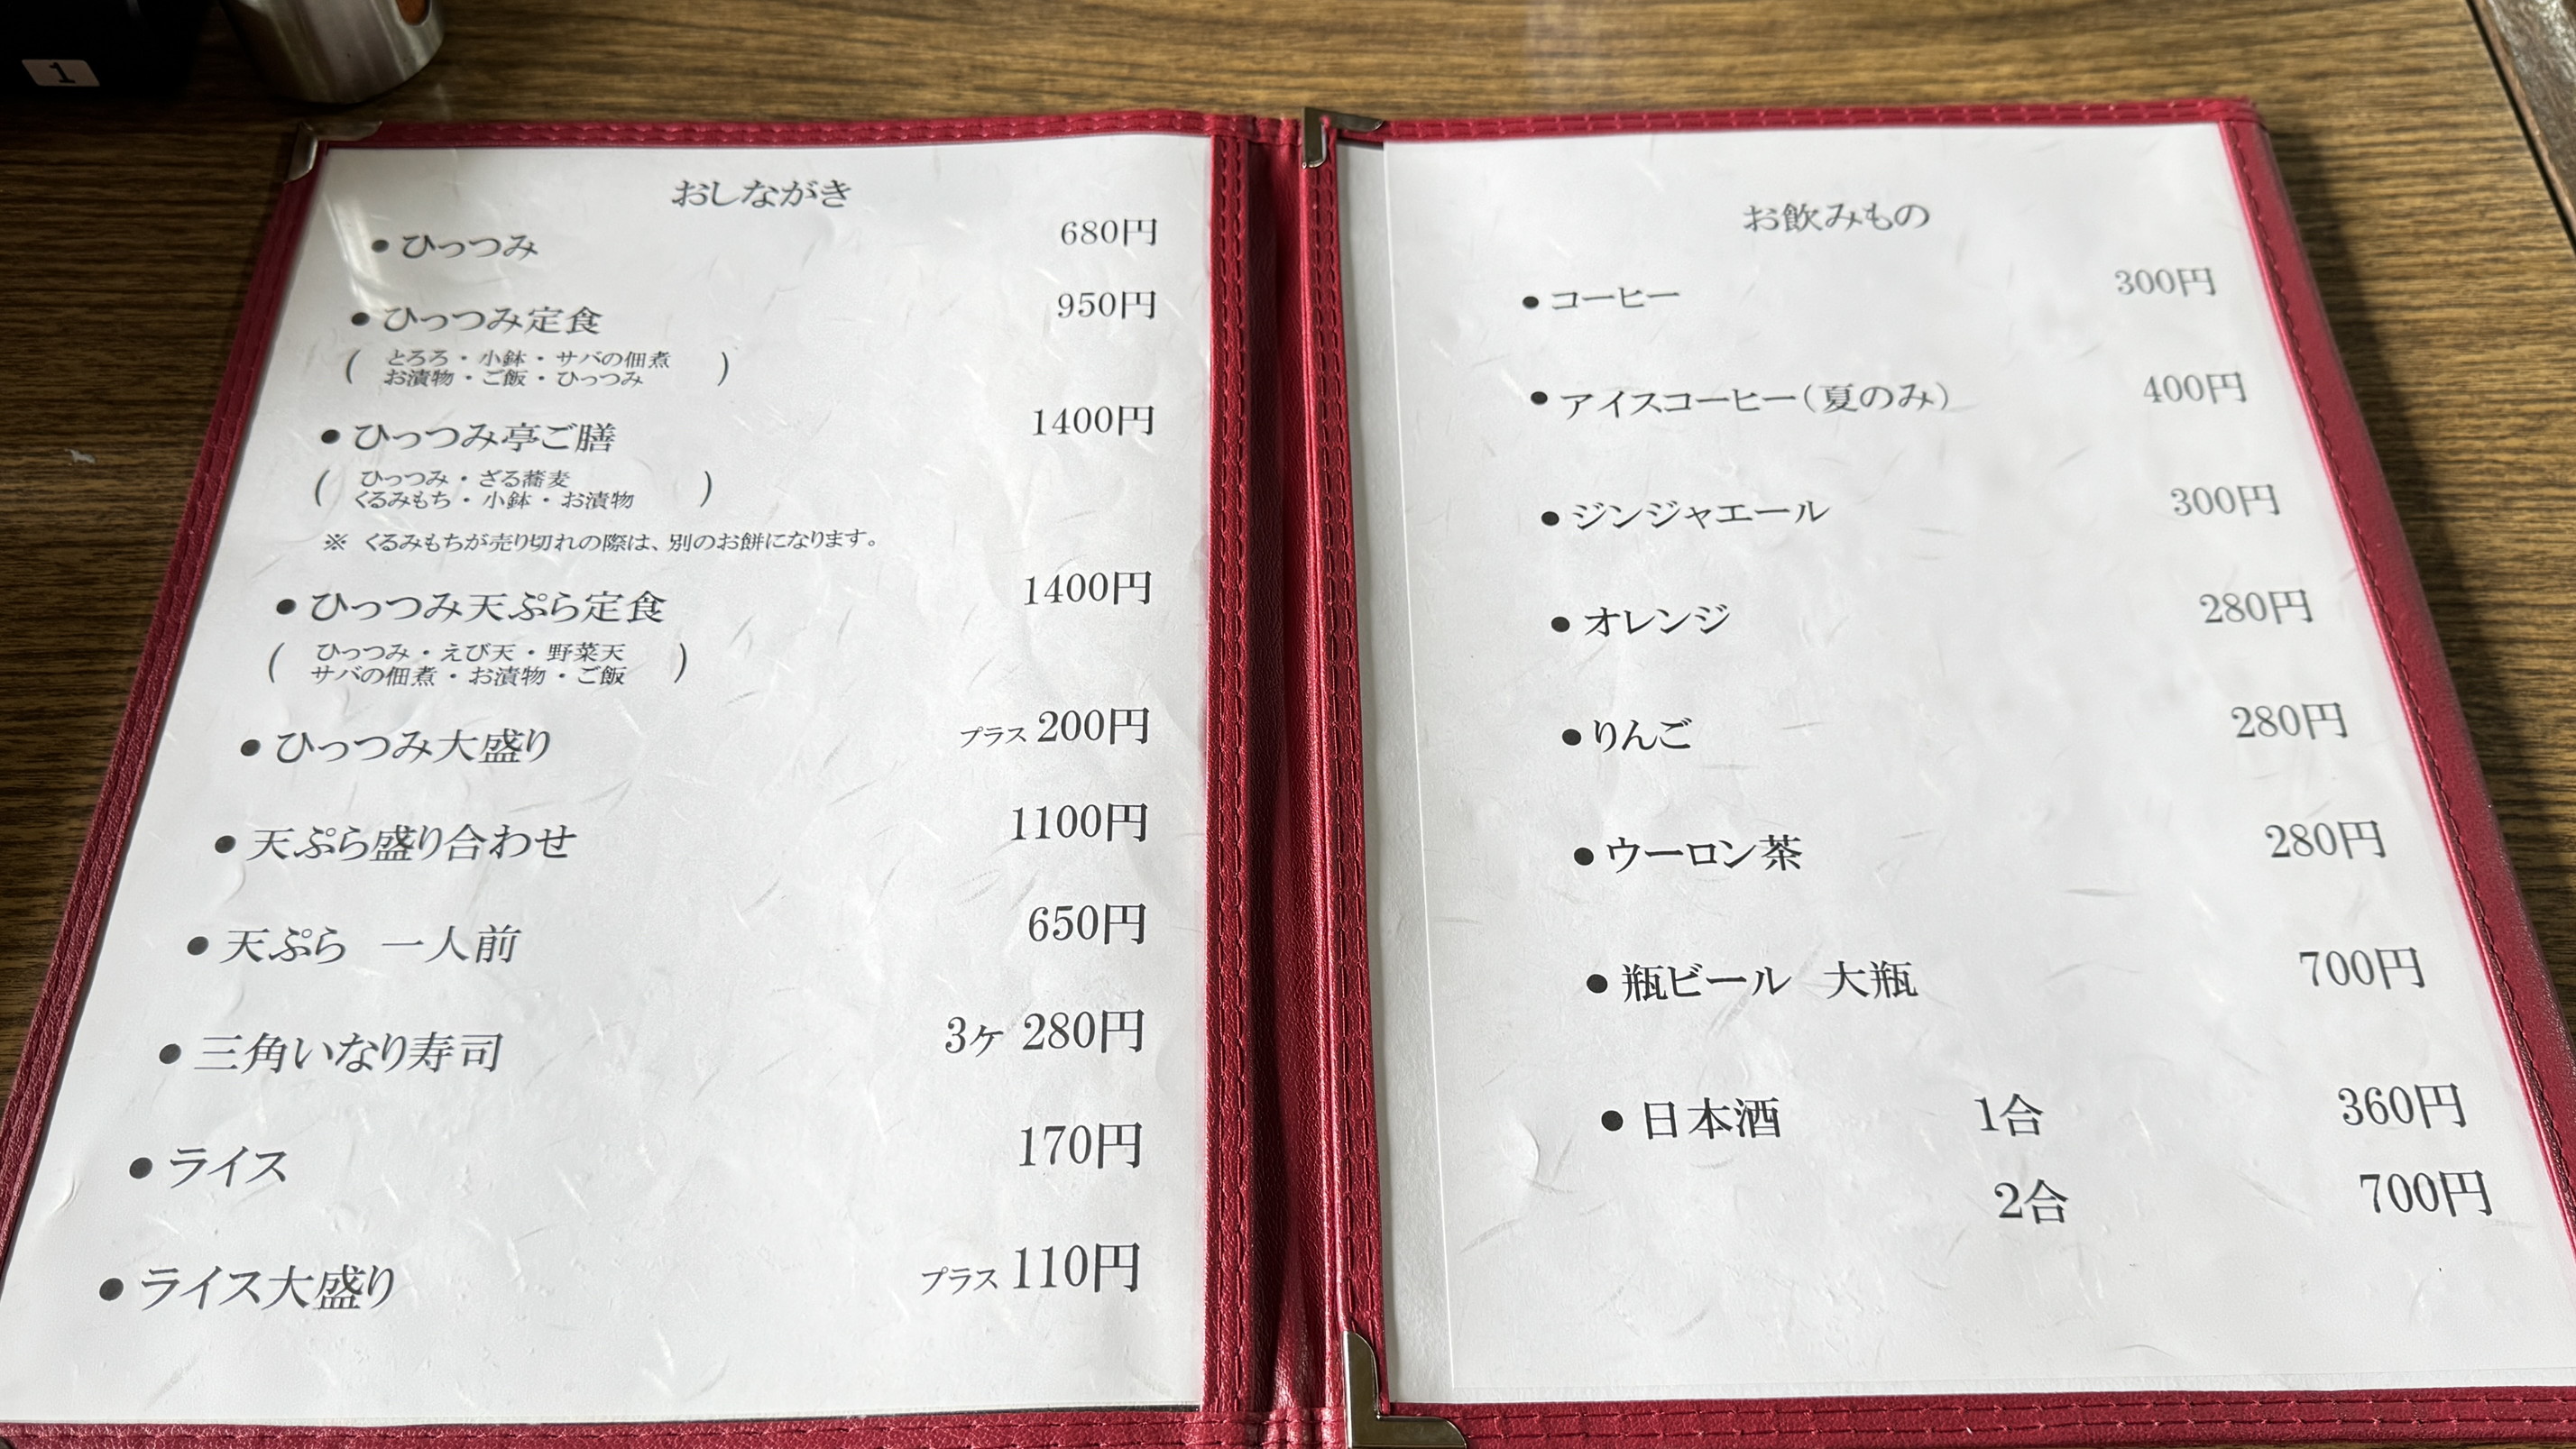 1
おしながき
● ひっつみ 680円
● ひっつみ定食 950円
( とろろ・小鉢・サバの佃煮
お漬物・ご飯・ひっつみ )
● ひっつみ亭ご膳 1400円
( ひっつみ・ざる蕎麦
くるみもち・小鉢・お漬物 )
※ くるみもちが売り切れの際は、別のお餅になります。
● ひっつみ天ぷら定食 1400円
( ひっつみ・えび天・野菜天
サバの佃煮・お漬物・ご飯 )
● ひっつみ大盛り プラス 200円
● 天ぷら盛り合わせ 1100円
● 天ぷら 一人前 650円
● 三角いなり寿司 3ヶ 280円
● ライス 170円
● ライス大盛り プラス 110円
お飲みもの
● コーヒー 300円
● アイスコーヒー(夏のみ) 400円
● ジンジャエール 300円
● オレンジ 280円
● りんご 280円
● ウーロン茶 280円
● 瓶ビール 大瓶 700円
● 日本酒 1合 360円
2合 700円